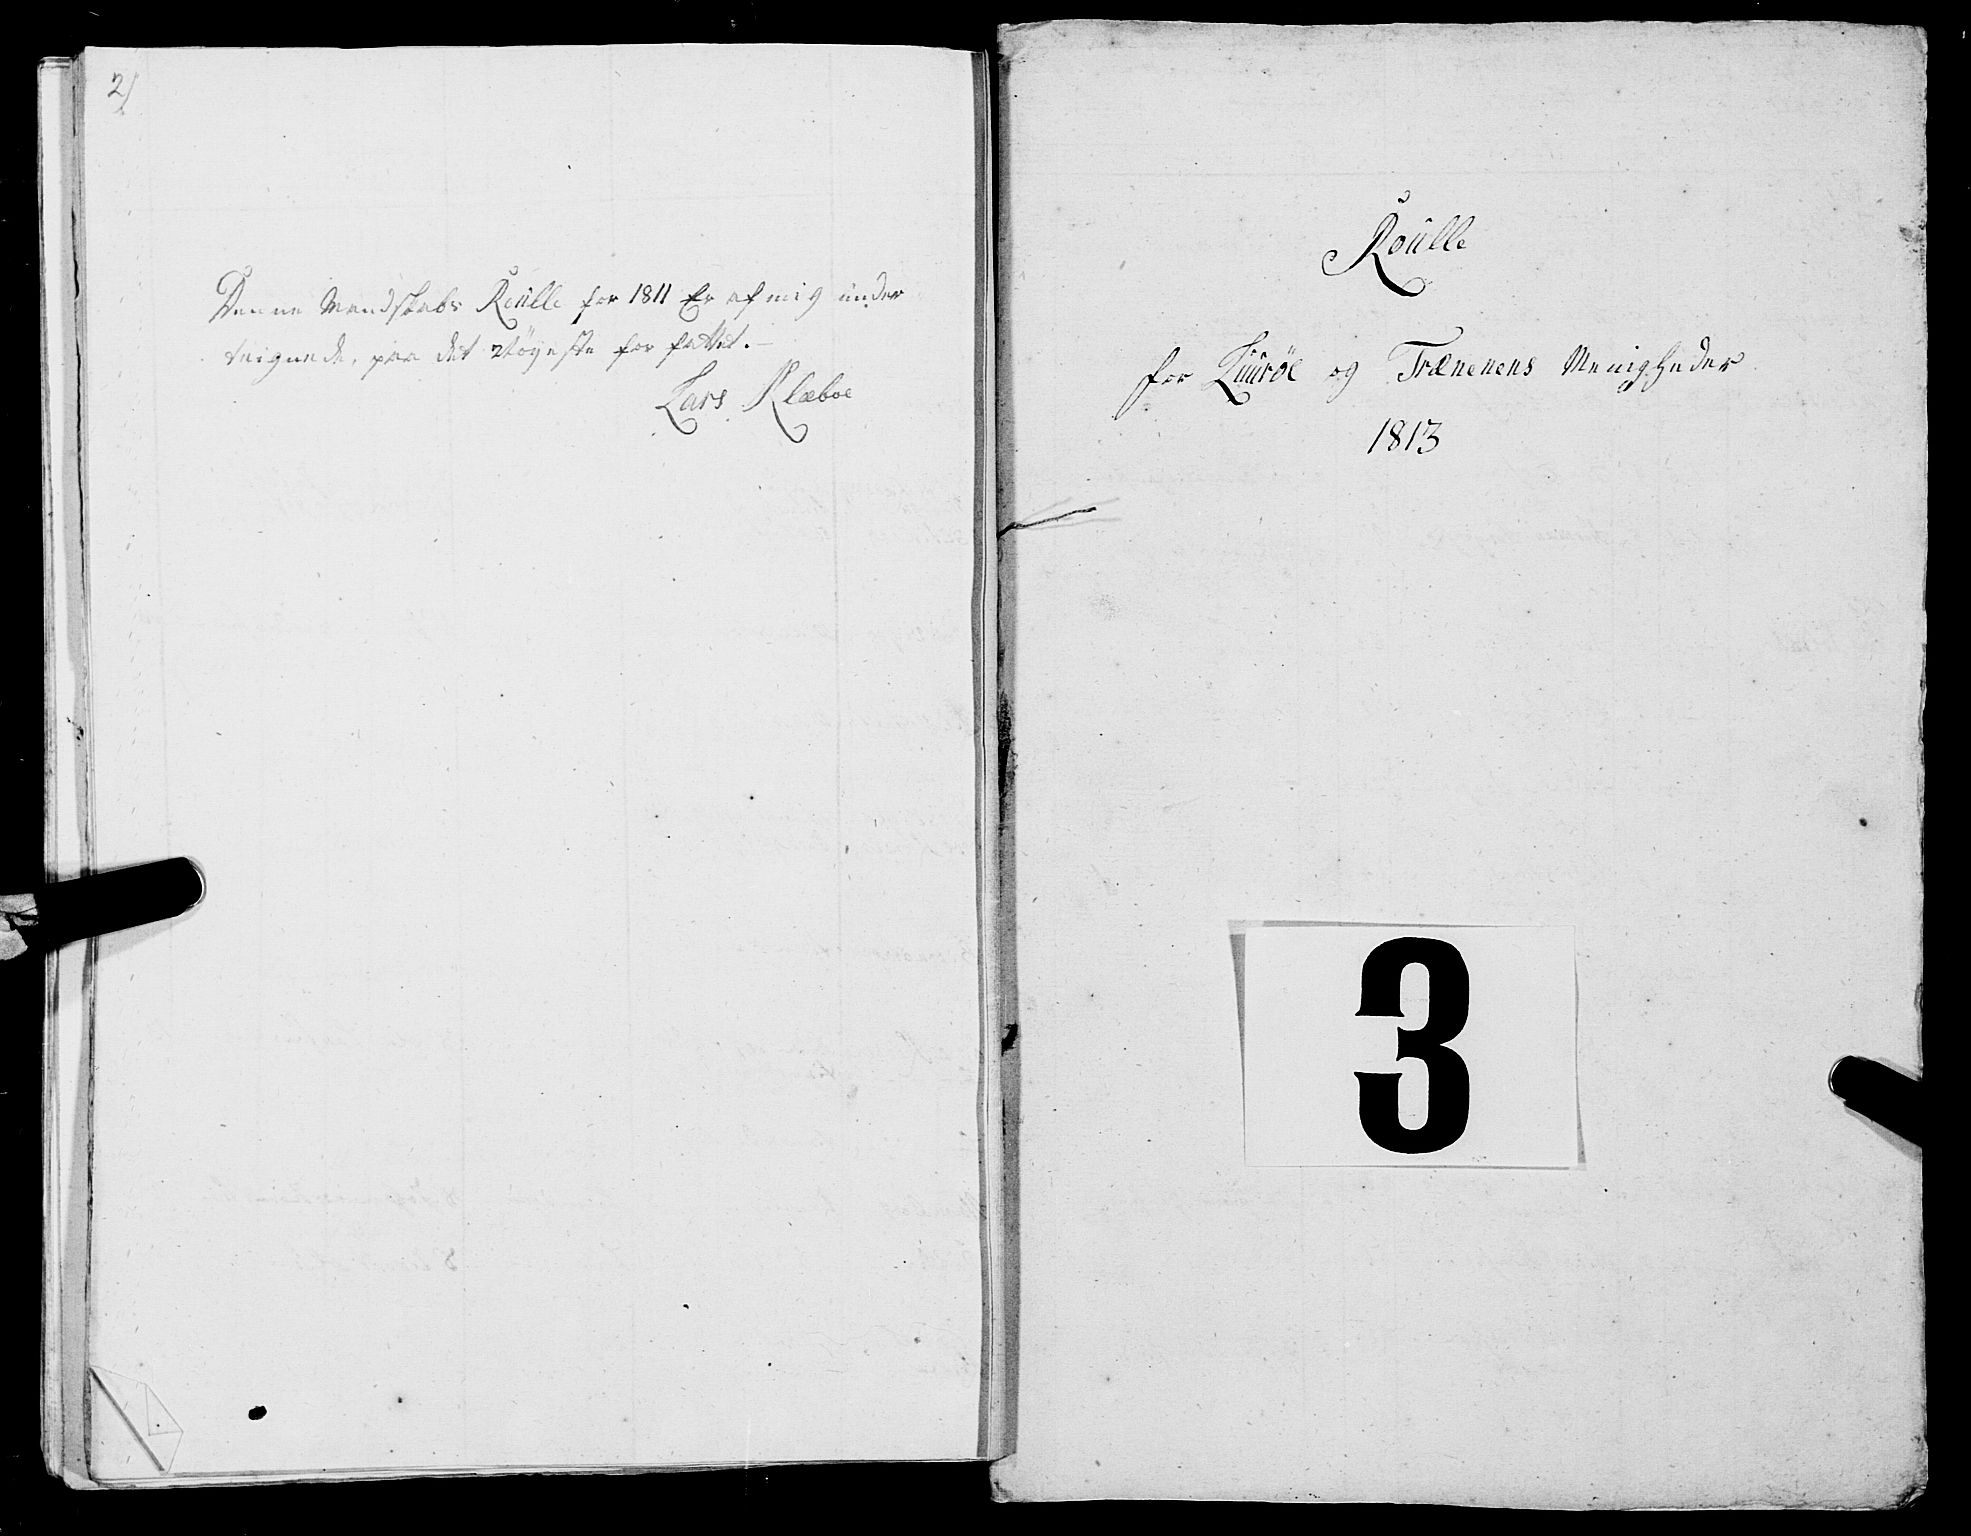 2/
Denne Mandskabs Roülle for 1811 Er af mig ünder
teignede, paa det Nöyeste for fattet.
Lars Klæboe
Roülle
for Lüüröe og Trænenens Menigheder
1813
3